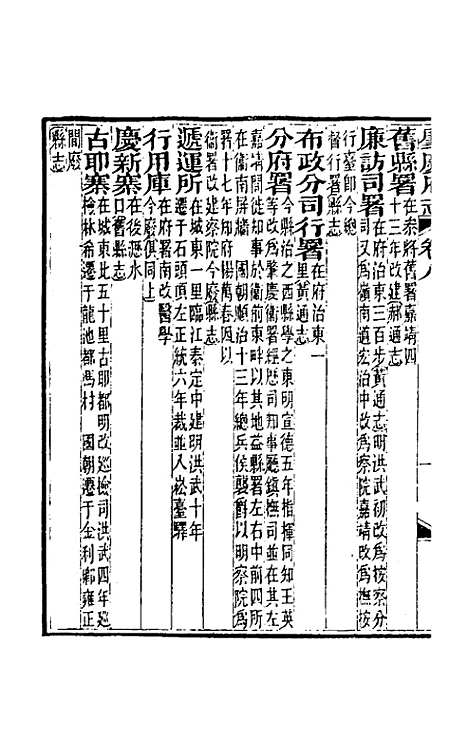 肇慶府志 卷八
舊縣署在泰將舊署嘉靖四十三年改建郝通志
廉訪司署在府治東三百步黃通志明洪武初改為按察分司又為嶺南道宏治中改為察院嘉靖改為撫按
督行臺即今總督行署縣志
布政分司行署在府治東一里黃通志
分府署今縣治之西縣學之東明宣德五年指揮同知王英等改為肇慶衛署經歷司知事廳鎮撫司並在其左
嘉靖間徙知事于衛前東畔以其地益縣署左右中前四所在衛南屏牆 國朝順治十三年總兵侯襲爵以明察院為
署十七年知府楊萬春以衛署改建察院今廢縣志
遞運所在城東一里臨江泰定中建明洪武十年遷于石頭頂左正統六年裁並入崧臺驛
行用庫在府署南改醫學今廢俱同上
慶新寨在後瀝水口舊縣志
古耶寨在城東北五十里古耶都明改巡檢司洪武四年巡檢林希遷于龍池都馮村 國朝遷于金利鄉雍正
間廢縣志